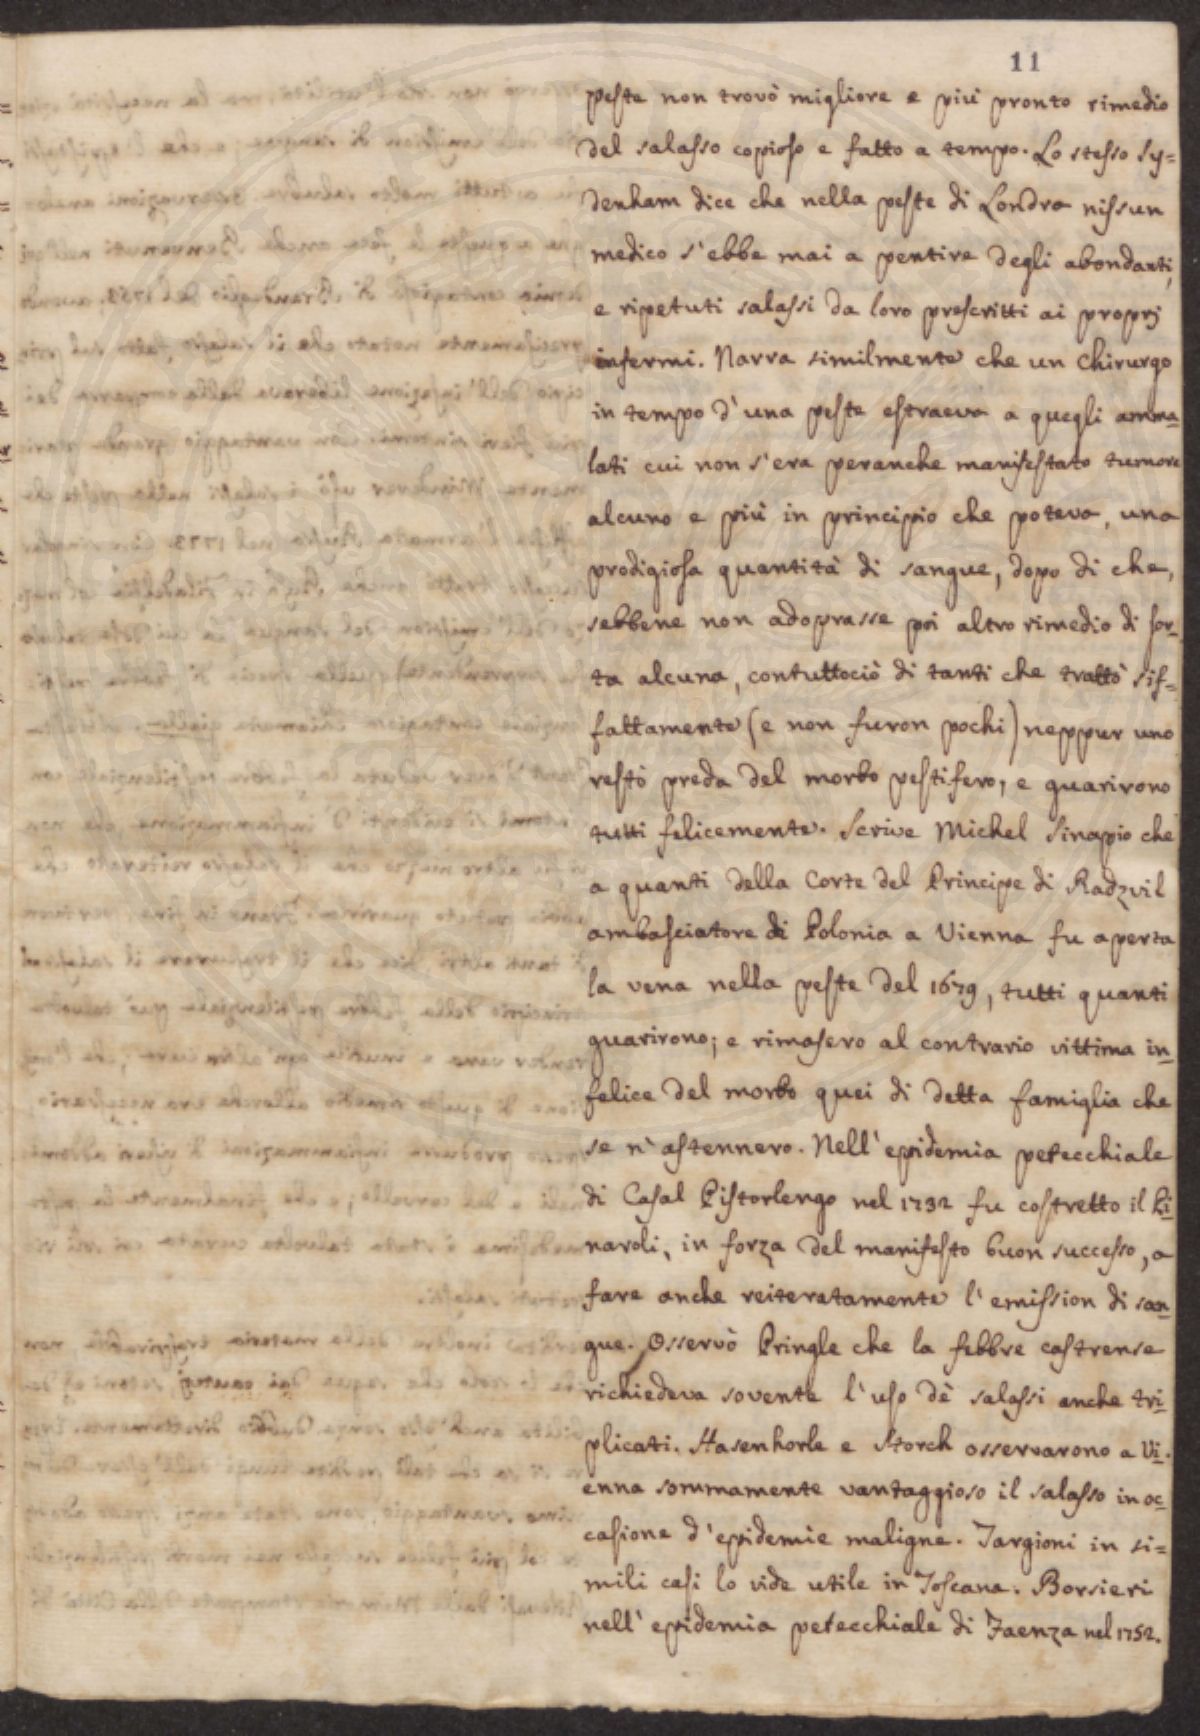 11
peste non trovò migliore e più pronto rimedio
del salasso copioso e fatto a tempo. Lo stesso Sy=
denham dice che nella peste di Londra nissun
medico s'ebbe mai a pentire degli abondanti,
e ripetuti salassi da loro prescritti ai proprj
infermi. Narra similmente che un Chirurgo
in tempo d'una peste estraeva a quegli amma-
lati cui non s'era peranche manifestato tumore
alcuno e più in principio che poteva, una
prodigiosa quantità di sangue, dopo di che,
sebbene non adoprasse poi altro rimedio di sor-
ta alcuna, contuttociò di tanti che trattò sif=
fattamente (e non furon pochi) neppur uno
restò preda del morbo pestifero, e guarirono
tutti felicemente. Scrive Michel Sinapio che
a quanti della Corte del Principe di Radzvil
ambasciatore di Polonia a Vienna fu aperta
la vena nella peste del 1679, tutti quanti
guarirono; e rimasero al contrario vittima in-
felice del morbo quei di detta famiglia che
se n'astennero. Nell'epidemia petecchiale
di Casal Pistorlengo nel 1732 fu costretto il Pi-
naroli, in forza del manifesto buon successo, a
fare anche reiteratamente l'emission di san-
gue. Osservò Pringle che la febbre castrense
richiedeva sovente l'uso dè salassi anche tri-
plicati. Hasenhorle e Storch osservarono a Vi-
enna sommamente vantaggioso il salasso in oc-
casione d'epidemie maligne. Targioni in si=
mili casi lo vide utile in Toscana. Borsieri
nell'epidemia petecchiale di Faenza nel 1752.